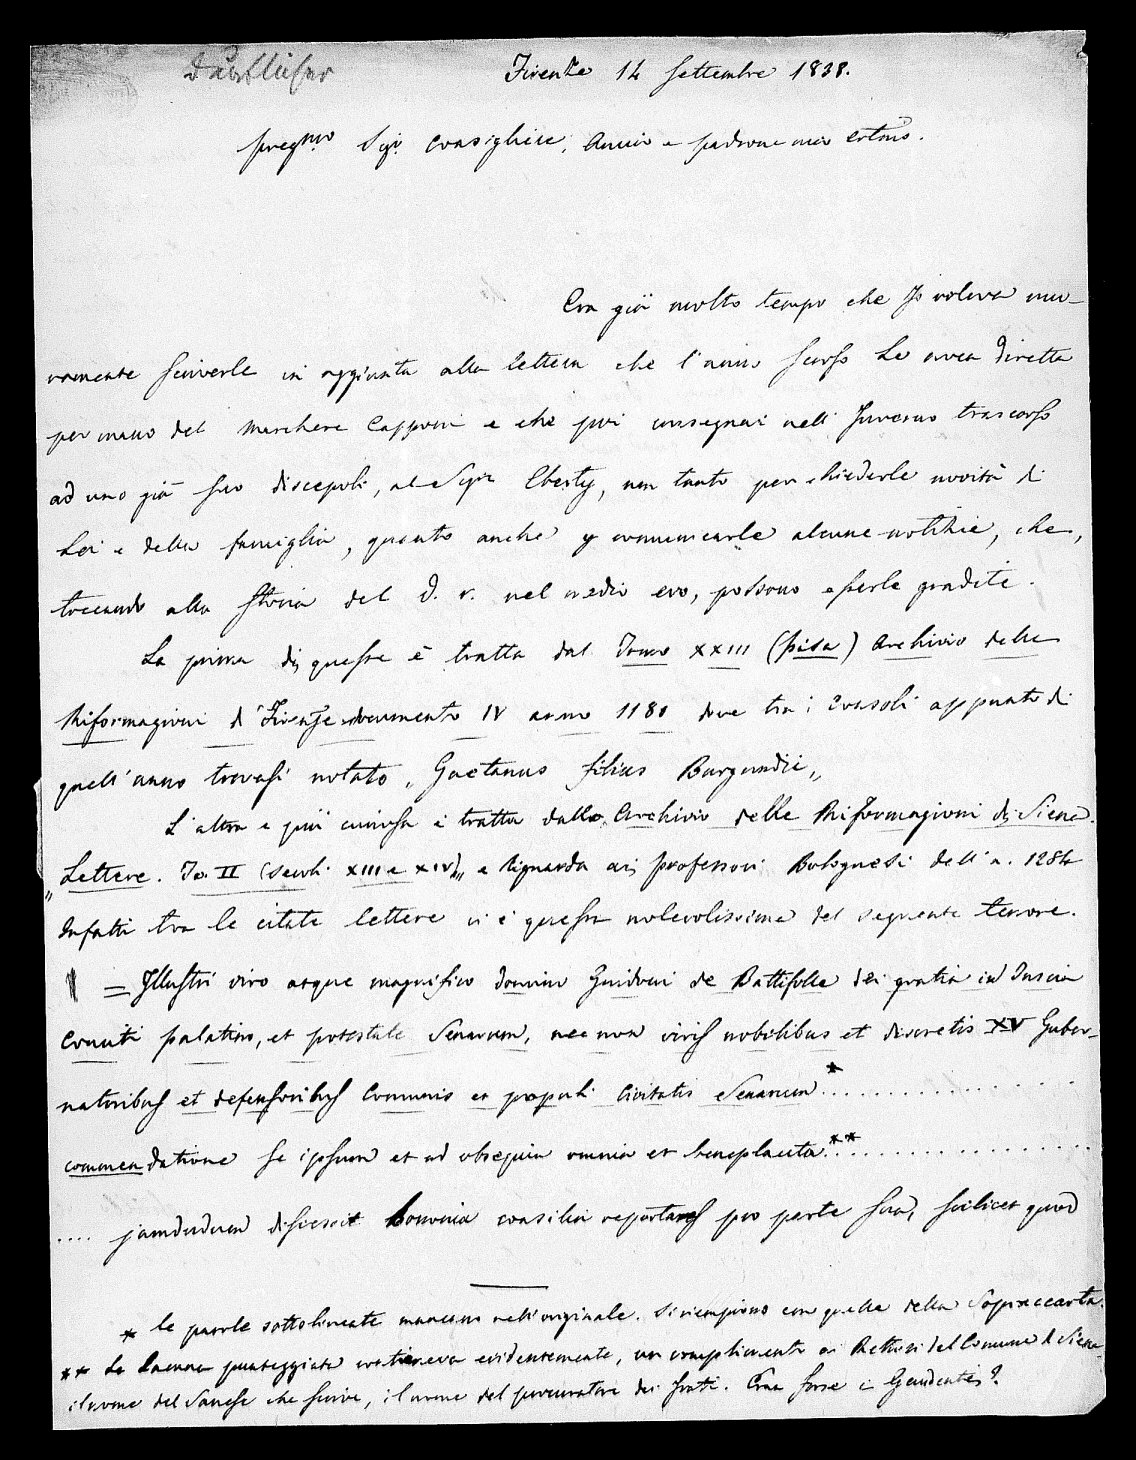 Firenze 14 Settembre 1838.
Preg.mo Sigr. Consigliere, Amico e padrone mio
Era già molto tempo che Jo voleva nuo-
vamente scriverle in aggiunta alla lettera che l'anno scorso Le avea diretta
per mano del Marchese Capponi e che poi consegnai nell' Inverno trascorso
ad uno già suo discepoli, al Sigr. , non tanto per chiederle novità di
Lei e della famiglia, quanto anche p comunicarle alcune notizie, che,
toccando alla Storia del D. r. nel medio evo, possono esserle gradite.
La prima di queste è tratta dal Tomo XXIII (Pisa) Archivio delle
Riformagioni di Firenze documento IV anno 1180 dove tra i Consoli appunto di
quell'anno trovasi notato „ Gaetanus filius Burgundii „
L'altra e più curiosa è tratta dallo Archivio delle Riformagioni di Siena.
„Lettere. To. II (secoli XIII e XIV)„ e riguarda ai professori Bolognesi dell'a. 1284
Infatti tra le citate lettere vi è questa notevolissima del seguente tenore.
= Illustri viro atque magnifico domino Guidoni de Battifolle dei gratia in Tuscia
Comiti palatino, et potestate Senarum, nec non viris nobilibus et discretis XV Guber-
natoribus et defensoribus Communis et populi Civitatis Senarum * ..........
commendatione se ipsum et ad obsequia omnia et beneplacita.** ..........
.... jamdudum discessit Bononia consilia reportans pro parte sua, scilicet quod
* le parole sottolineate mancano nell'originale. Si riempirono con quelle della Sopraccarta.
** La lacuna punteggiata conteneva evidentemente, un complimento ai Rettori del Comune di Siena
il nome del Sanese che scrive, il nome del procuratore dei frati. Eran forse i Gaudenti?